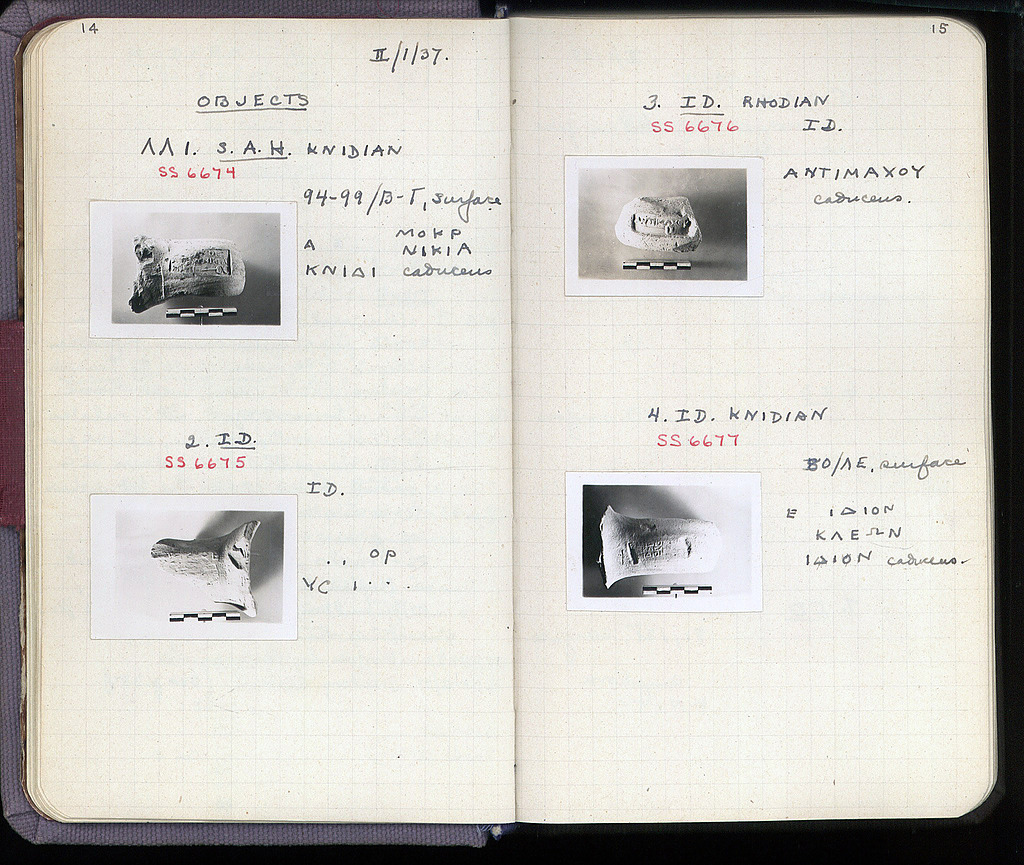 14
II/1/37.
OBJECTS
ΛΛ 1. S.A.H. KNIDIAN
SS 6674
94-99/Β-Γ, surface
ΜΟΚΡ
Α ΝΙΚΙΑ
ΚΝΙΔΙ caduceus
2. ID.
SS 6675
ID.
. . ΟΡ
Ι . . .
15
3. ID. RHODIAN
SS 6676 ID.
ΑΝΤΙΜΑΧΟΥ
caduceus.
4. ID. KNIDIAN
SS 6677
/ΛΕ, surface
Ε ΙΔΙΟΝ
ΚΛΕΩΝ
ΙΔΙΟΝ caduceus.